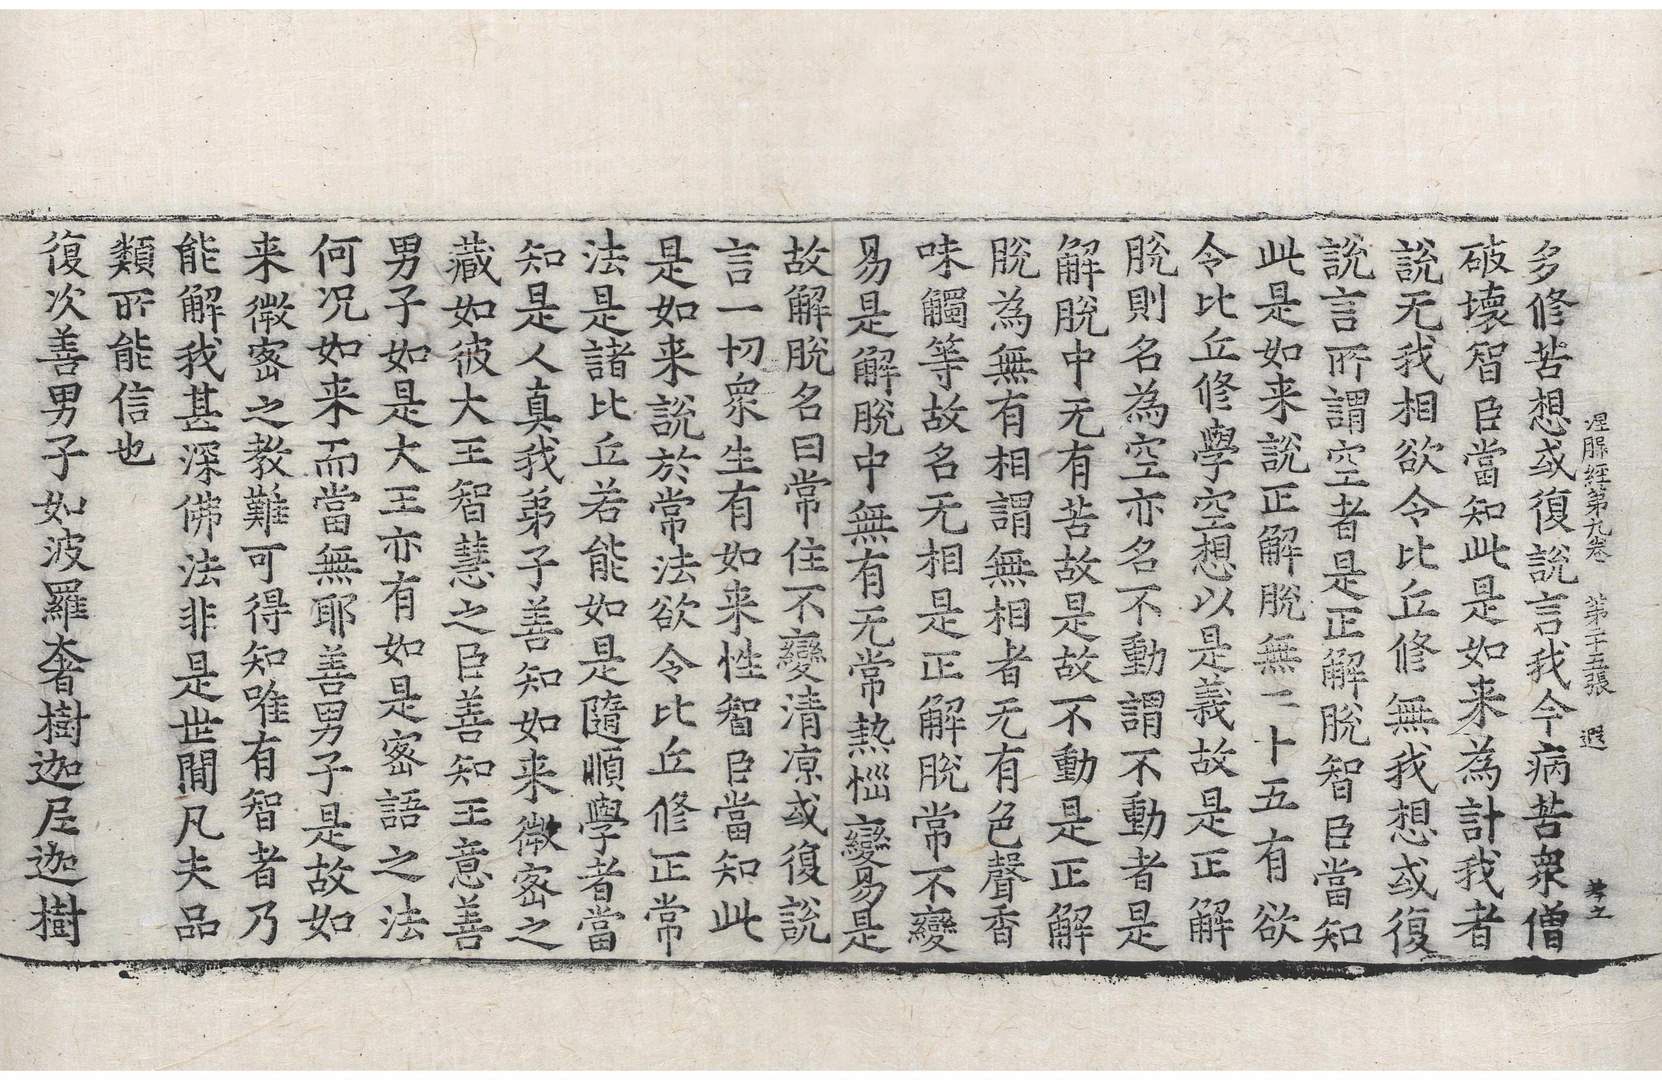 涅槃經第九卷 第二十五張 遐
多修苦想或復說言我今病苦衆僧
破壞智臣當知此是如来為計我者
說无我相欲令比丘修無我想或復
說言所謂空者是正解脫智臣當知
此是如来說正解脫無二十五有欲
令比丘修學空想以是義故是正解
脫則名為空亦名不動謂不動者是
解脫中无有苦故是故不動是正解
脫為無有相謂無相者无有色聲香
味觸等故名无相是正解脫常不變
易是解脫中無有无常熱惱變易是
故解脫名曰常住不變清凉或復說
言一切衆生有如来性智臣當知此
是如来說於常法欲令比丘修正常
法是諸比丘若能如是隨順學者當
知是人真我弟子善知如来微密之
藏如彼大王智慧之臣善知王意善
男子如是大王亦有如是密語之法
何况如来而當無耶善男子是故如
来微密之教難可得知唯有智者乃
能解我甚深佛法非是世間凡夫品
類所能信也
復次善男子如波羅奢樹迦尼迦樹